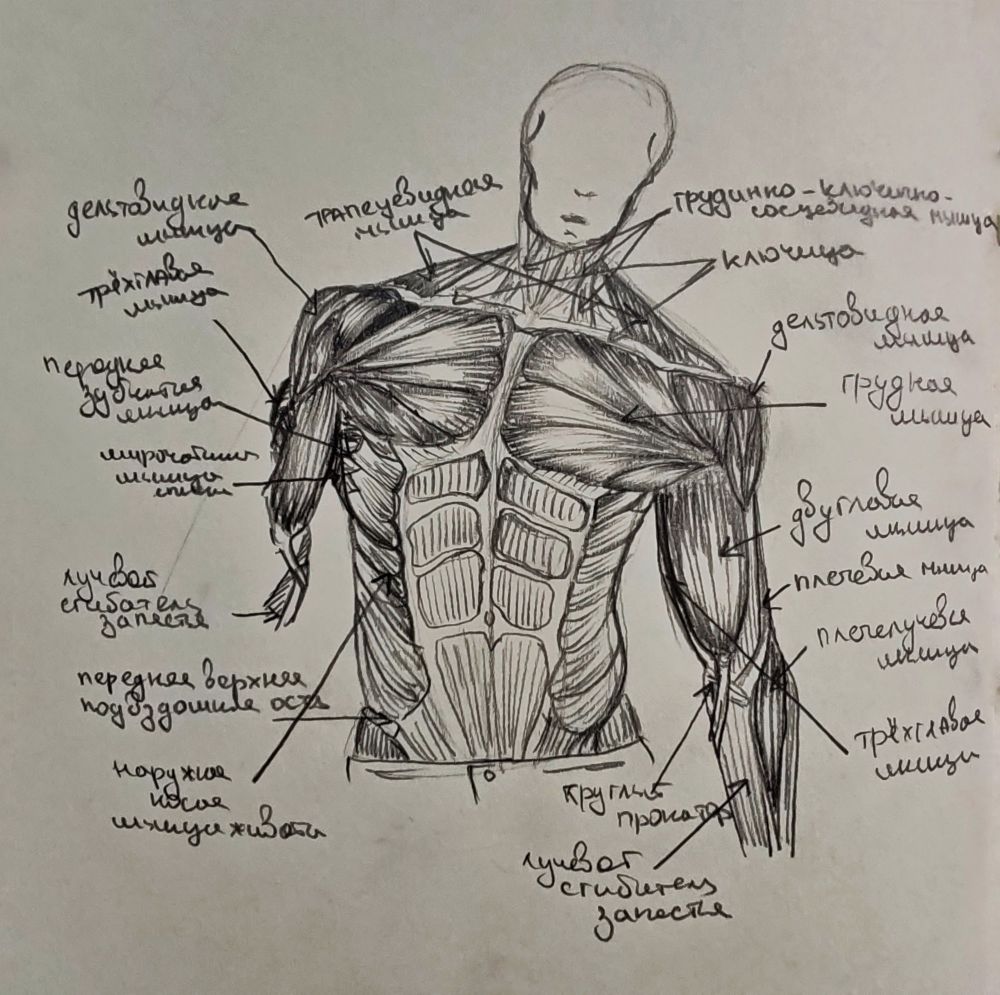 дельтовидная
мышца
трапецевидная
мышца
грудинко-ключично-
сосцевидная мышца
ключица
трёхглавая
мышца
дельтовидная
мышца
передняя
зубчатая
мышца
грудная
мышца
широчайшая
мышца
спины
двуглавая
мышца
плечевая мышца
лучевой
сгибатель
запястья
плечелучевая
мышца
передняя верхняя
подвздошная ость
трёхглавая
мышца
наружная
косая
мышца живота
круглый
пронатор
лучевой
сгибатель
запястья